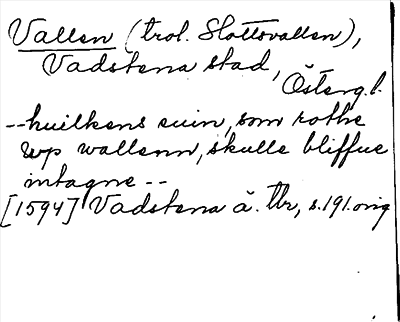 Vallen (trol. Slottsvallen),
Vadstena stad,
Österg.l.
--huilkens suin, som rothe
wp wallenn, skulle bliffue
intagne --
[1594] Vadstena ä. Tbr, s.191.orig